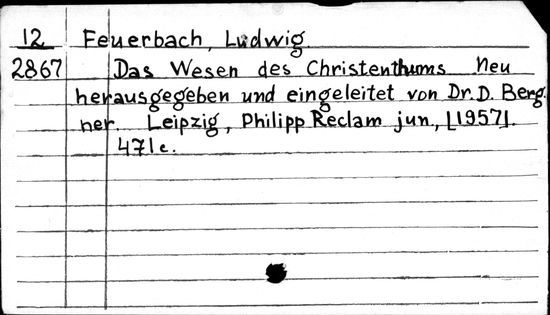 12 Feuerbach, Ludwig.
2867 Das Wesen des Christenthums Neu
herausgegeben und eingeleitet von Dr. D. Berg-
ner. Leipzig, Philipp Reclam jun., [1957].
471 c.